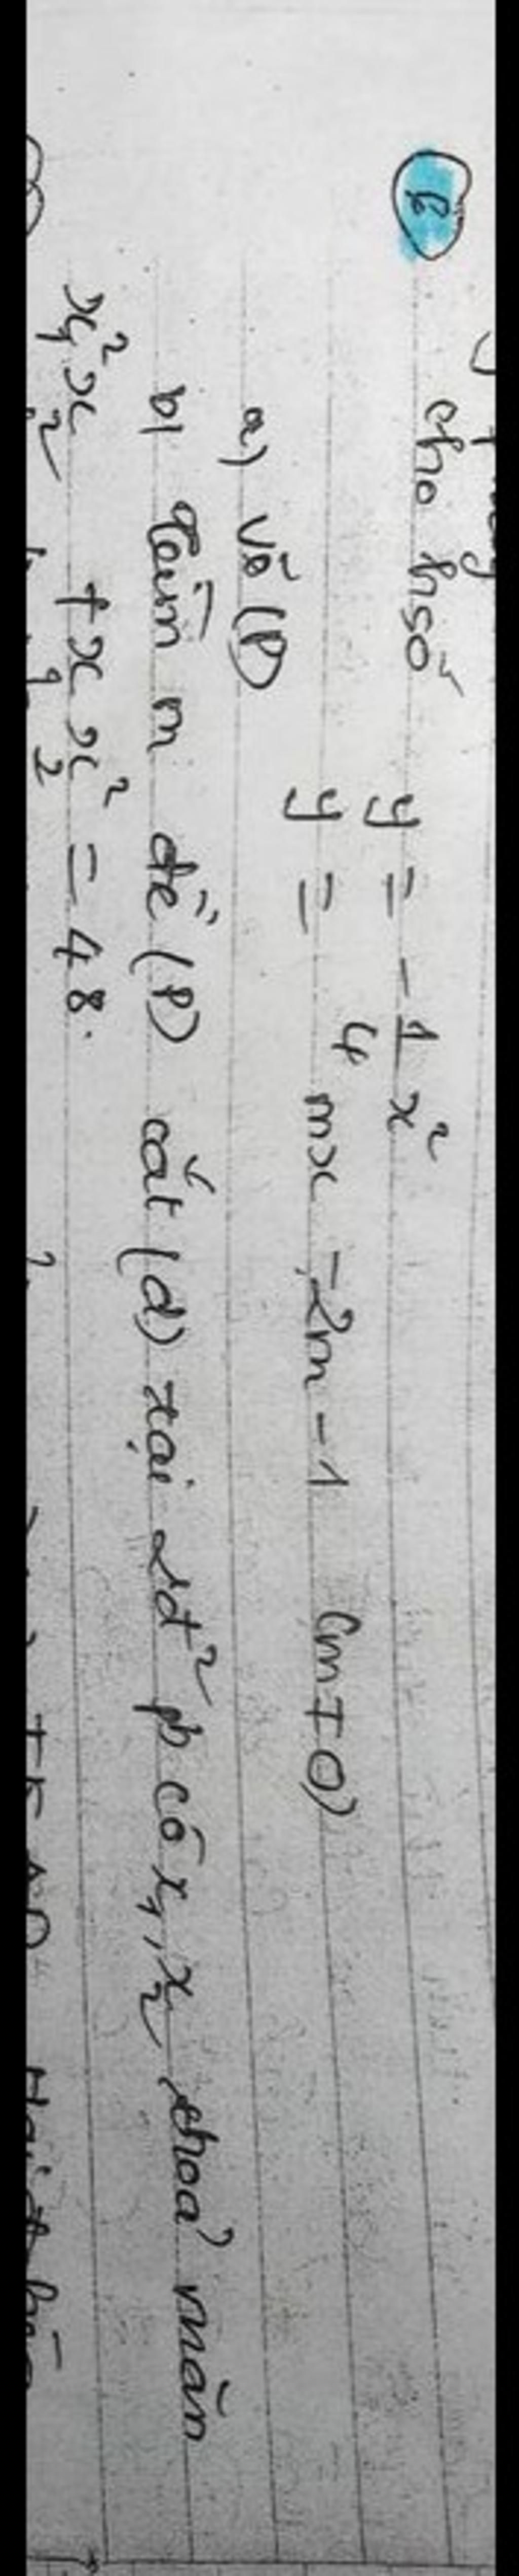 6
cho hsố y = -1/4 x²
y = mx - 2m - 1 (m ≠ 0)
a) Vẽ (P)
b) Tìm m để (P) cắt (d) tại 2đ² pb có x₁, x₂ thoả mãn
x₁²x₂ + x₁x₂² = 48.